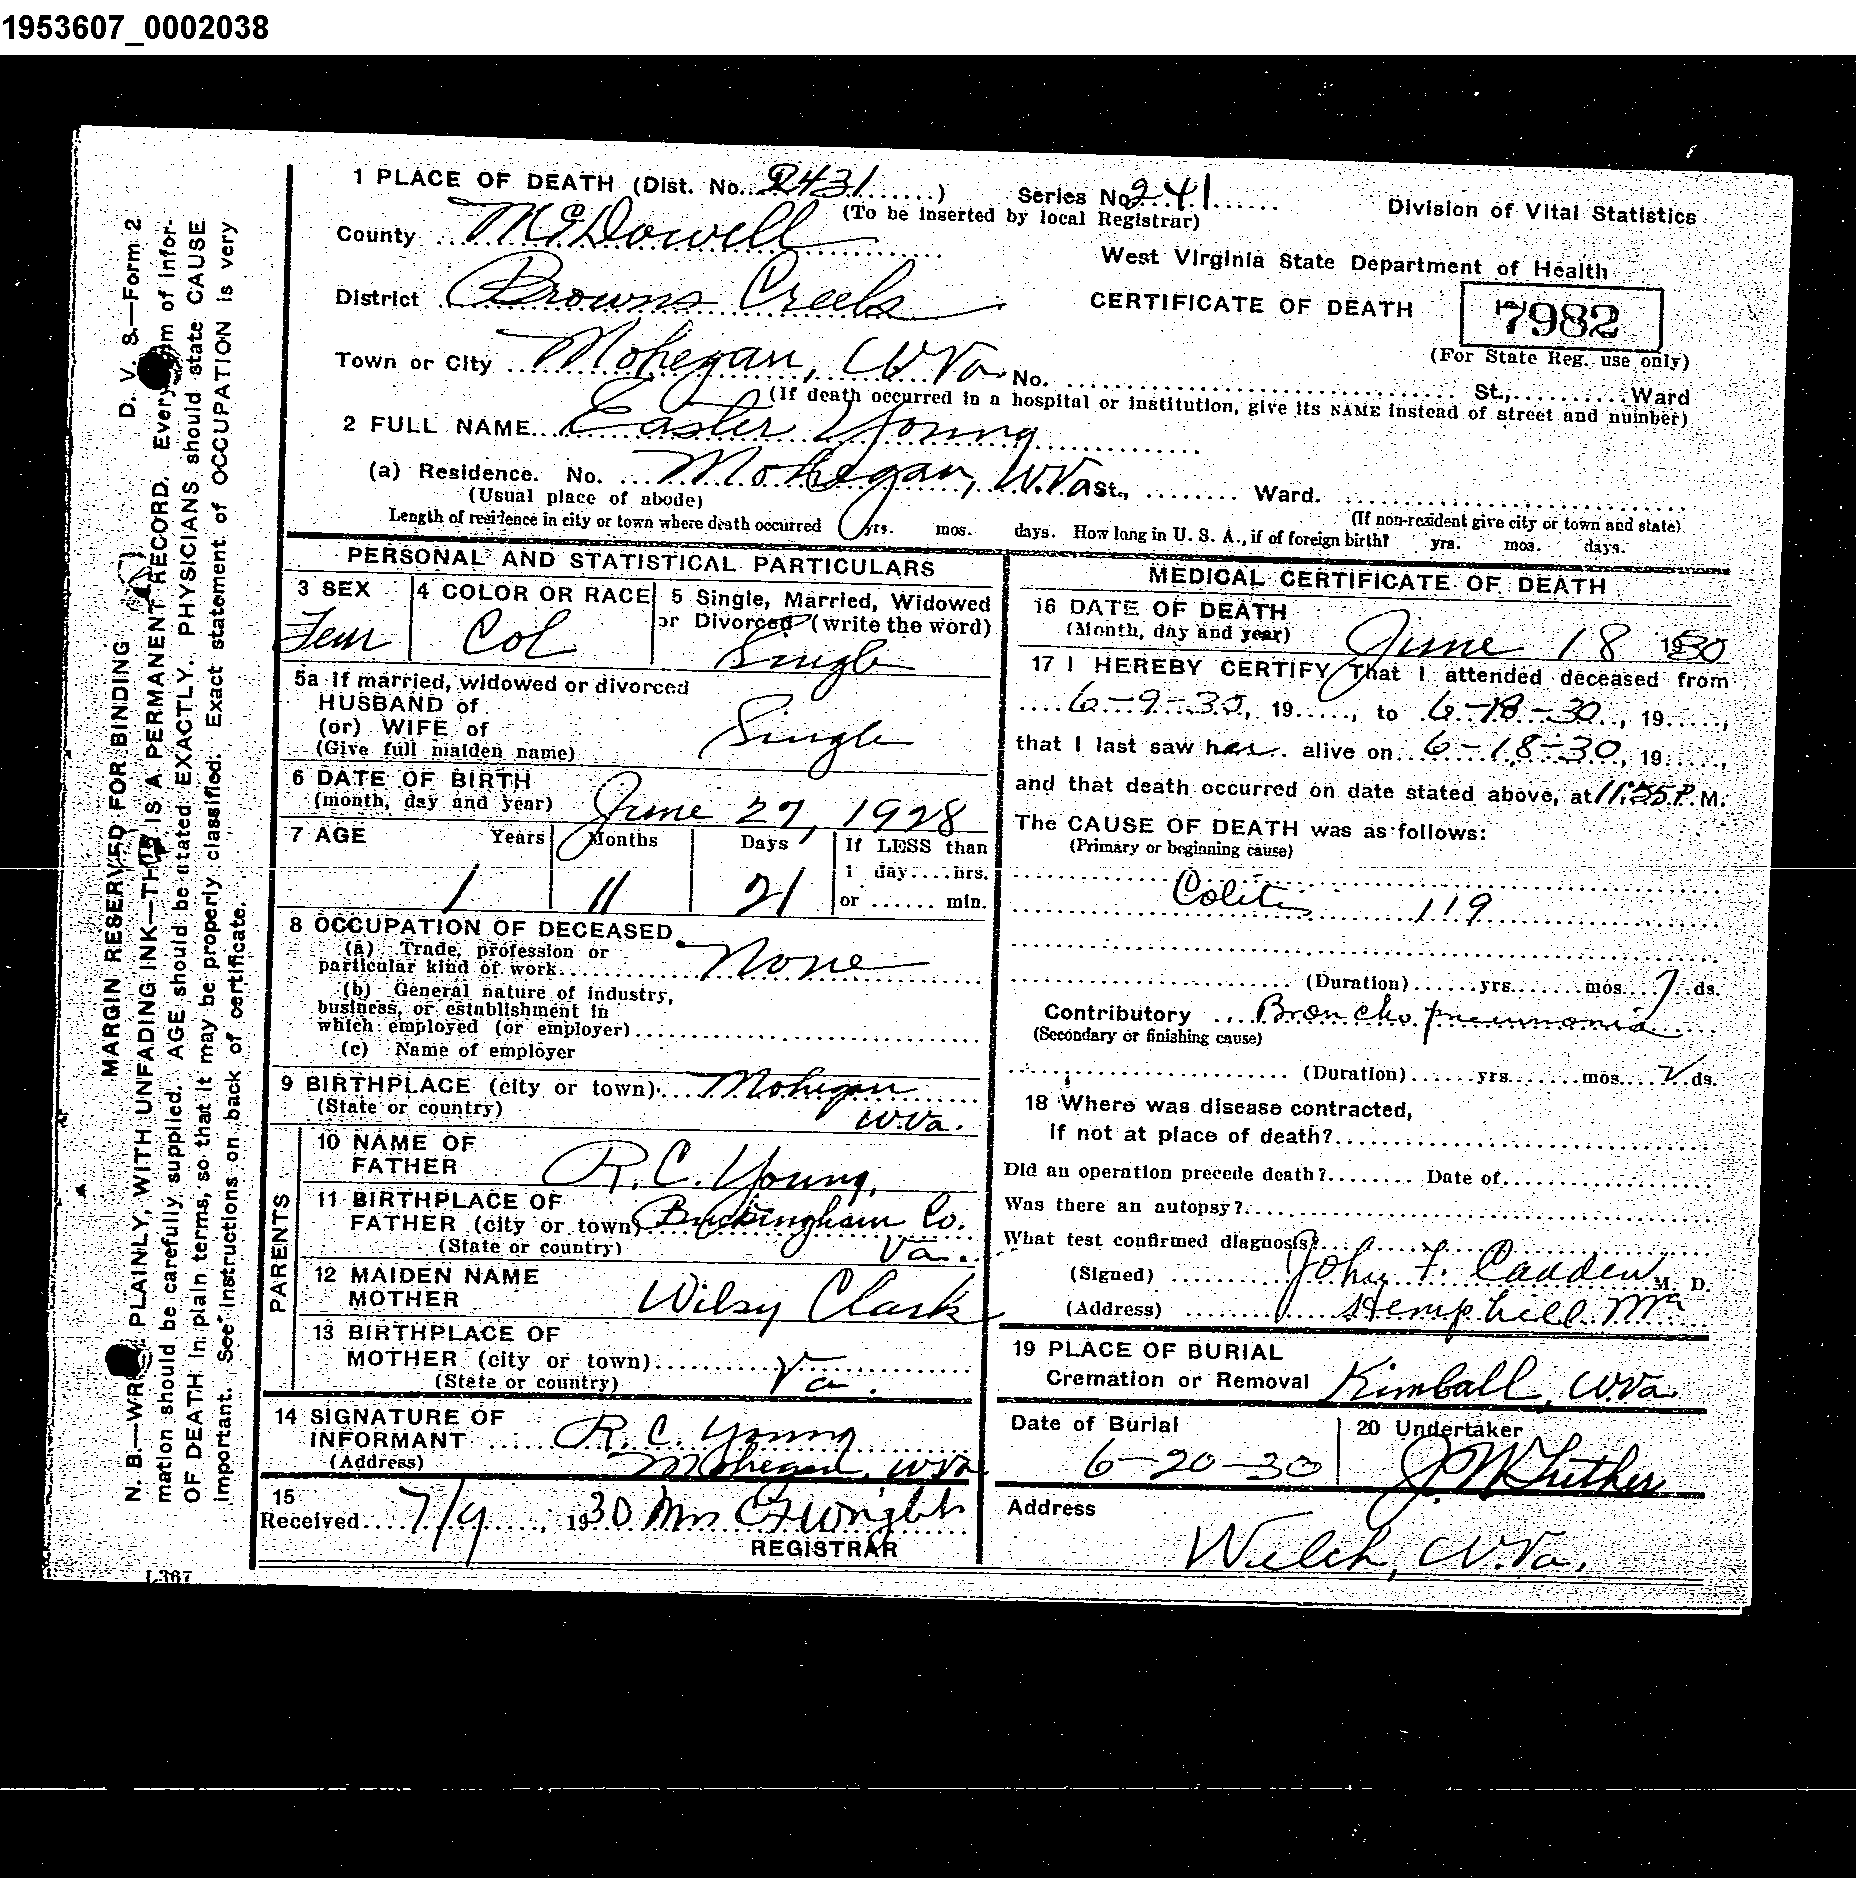 1953607_0002038
1 PLACE OF DEATH (Dist. No. 2431) Series No. 241
(To be inserted by local Registrar)
Division of Vital Statistics
County McDowell
West Virginia State Department of Health
District Browns Creek
CERTIFICATE OF DEATH
7982
(For State Reg. use only)
Town or City Mohegan, W Va No. St., Ward
(If death occurred in a hospital or institution, give its NAME instead of street and number)
2 FULL NAME Easter Young
(a) Residence. No. Mohegan, W.Va St., Ward.
(Usual place of abode) (If non-resident give city or town and state)
Length of residence in city or town where death occurred yrs. mos. days. How long in U. S. A., if of foreign birth? yrs. mos. days.
PERSONAL AND STATISTICAL PARTICULARS
3 SEX 4 COLOR OR RACE 5 Single, Married, Widowed
or Divorced (write the word)
Fem Col Single
5a If married, widowed or divorced
HUSBAND of
(or) WIFE of Single
(Give full maiden name)
6 DATE OF BIRTH
(month, day and year) June 27, 1928
7 AGE Years Months Days If LESS than
1 day....hrs.
1 11 21 or ...... min.
8 OCCUPATION OF DECEASED
(a) Trade, profession or
particular kind of work None
(b) General nature of industry,
business, or establishment in
which employed (or employer)
(c) Name of employer
9 BIRTHPLACE (city or town) Mohegan
(State or country) W.Va.
PARENTS
10 NAME OF
FATHER R. C. Young.
11 BIRTHPLACE OF
FATHER (city or town) Buckingham Co.
(State or country) Va.
12 MAIDEN NAME
MOTHER Wilsy Clark
13 BIRTHPLACE OF
MOTHER (city or town)
(State or country) Va.
14 SIGNATURE OF
INFORMANT R. C. Young
(Address) Mohegan, W Va
15
Received 7/9, 1930 Mrs C F Wright
REGISTRAR
MEDICAL CERTIFICATE OF DEATH
16 DATE OF DEATH
(Month, day and year) June 18 1930
17 I HEREBY CERTIFY That I attended deceased from
6-9-30, 19....., to 6-18-30, 19.....,
that I last saw her alive on 6-18-30, 19.....,
and that death occurred on date stated above, at P. M.
The CAUSE OF DEATH was as follows:
(Primary or beginning cause)
Colitis 119
(Duration) yrs. mos. 7 ds.
Contributory Broncho pneumonia
(Secondary or finishing cause)
(Duration) yrs. mos. ds.
18 Where was disease contracted,
if not at place of death?
Did an operation precede death? Date of
Was there an autopsy?
What test confirmed diagnosis?
(Signed) John F. M. D.
(Address) Hemphill
19 PLACE OF BURIAL
Cremation or Removal Kimball, W Va
Date of Burial 20 Undertaker
6-20-30 J. W Luther
Address
Welch, W. Va.
D. V. S.—Form 2
MARGIN RESERVED FOR BINDING
N. B.—WRITE PLAINLY, WITH UNFADING INK—THIS IS A PERMANENT RECORD. Every item of infor-
mation should be carefully supplied. AGE should be stated EXACTLY. PHYSICIANS should state CAUSE
OF DEATH in plain terms, so that it may be properly classified. Exact statement of OCCUPATION is very
important. See instructions on back of certificate.
L367